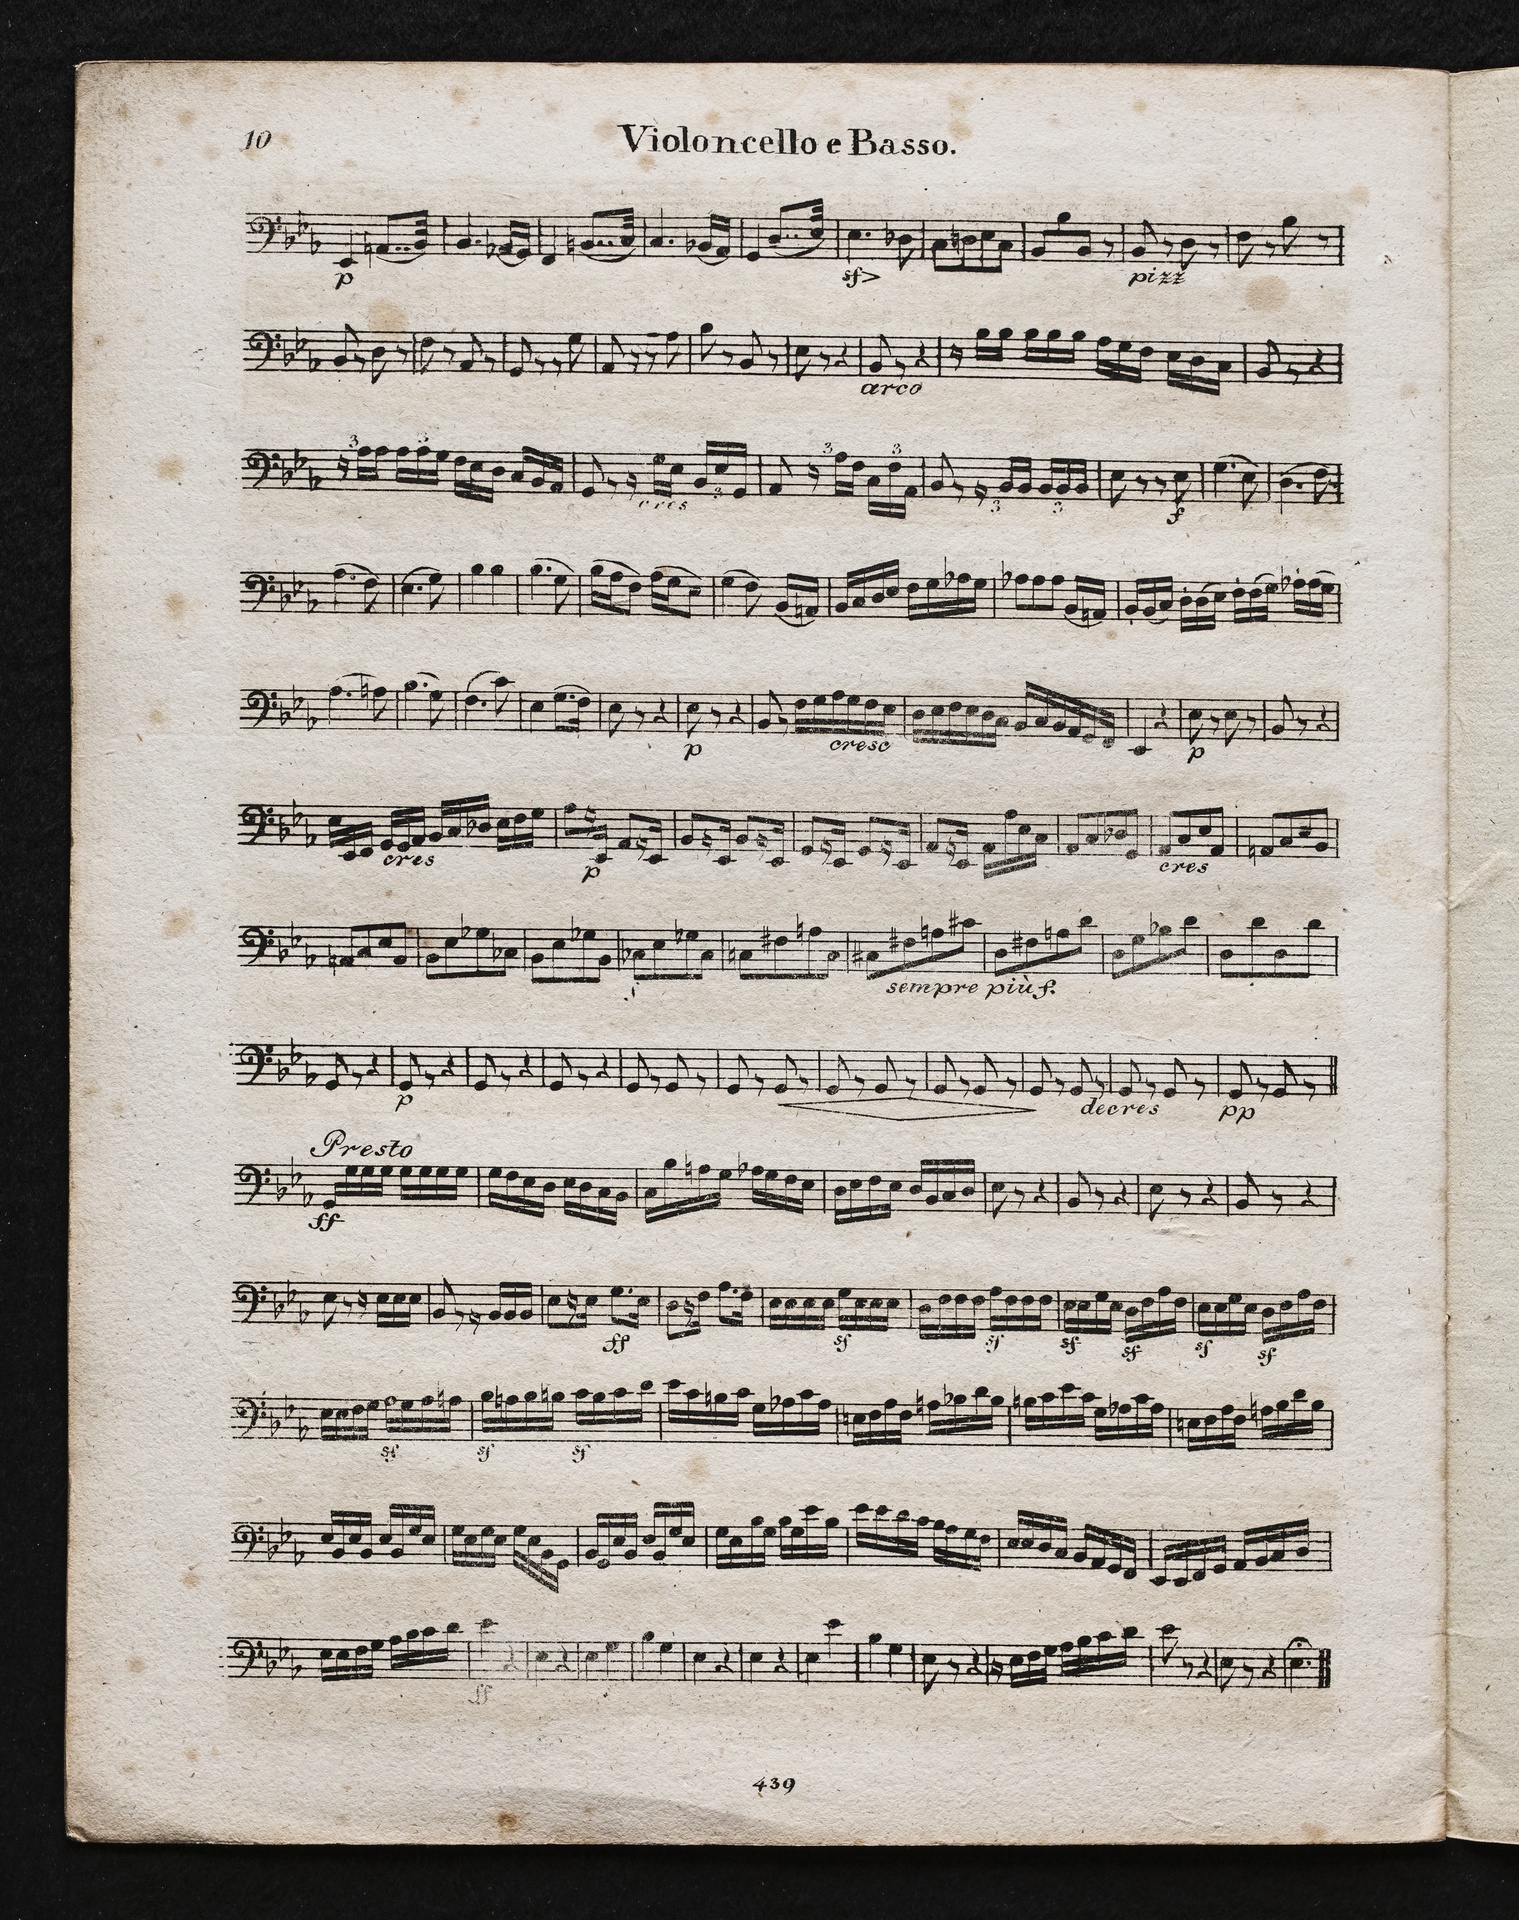 10
Violoncello e Basso.
p sf> pizz
arco
3 3 cres 3 3 3 3 3 f
p cresc p
cres p cres
sempre più f.
p decres pp
Presto
ff
ff sf sf sf sf sf sf
sf sf sf
ff
439